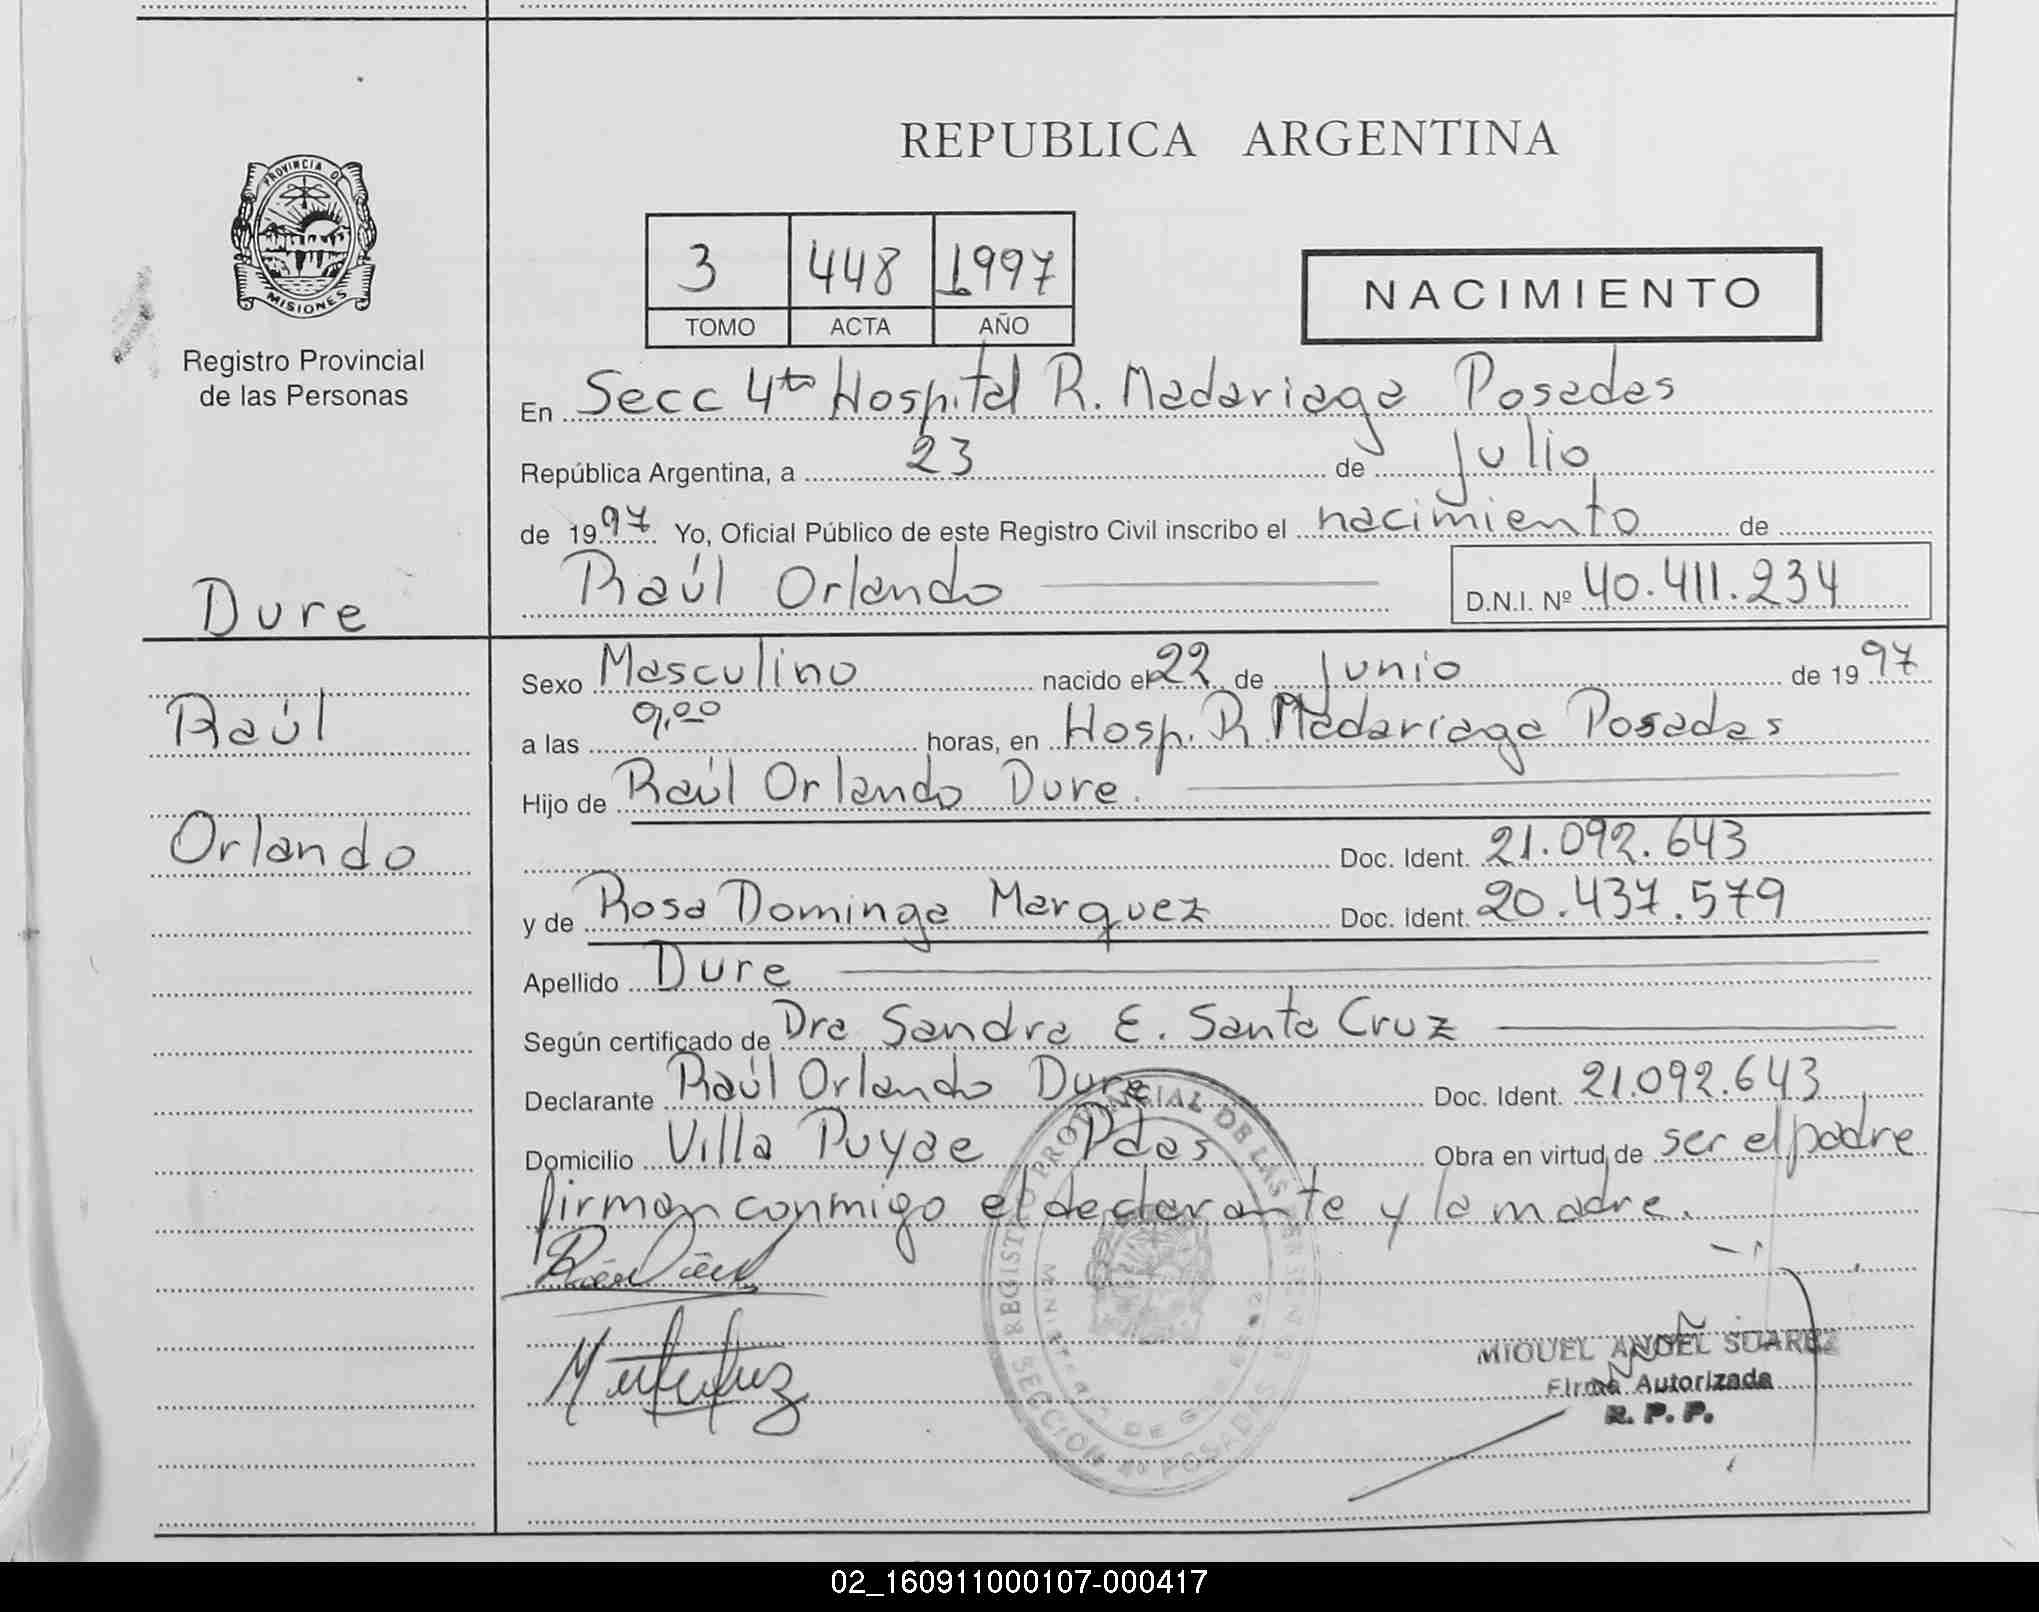 PROVINCIA DE
MISIONES
Registro Provincial
de las Personas
REPUBLICA ARGENTINA
3 448 1997
TOMO ACTA AÑO
NACIMIENTO
En Secc 4ta Hospital R. Madariaga Posadas
República Argentina, a 23 de Julio
de 1997 Yo, Oficial Público de este Registro Civil inscribo el nacimiento de
Raúl Orlando D.N.I. Nº 40.411.234
Dure
Raúl
Orlando
Sexo Masculino nacido el 22 de Junio de 1997
a las 9,00 horas, en Hosp. R. Madariaga Posadas
Hijo de Raúl Orlando Dure.
Doc. Ident. 21.092.643
y de Rosa Dominga Marquez Doc. Ident. 20.437.579
Apellido Dure
Según certificado de Dra Sandra E. Santa Cruz
Declarante Raúl Orlando Dure Doc. Ident. 21.092.643
Domicilio Villa Puyae Pdas Obra en virtud de ser el padre
firman conmigo el declarante y la madre.
REGISTRO PROVINCIAL DE LAS PERSONAS
SECCION 4º POSADAS
MIGUEL ANGEL SUAREZ
Firma Autorizada
R. P. P.
02_160911000107-000417